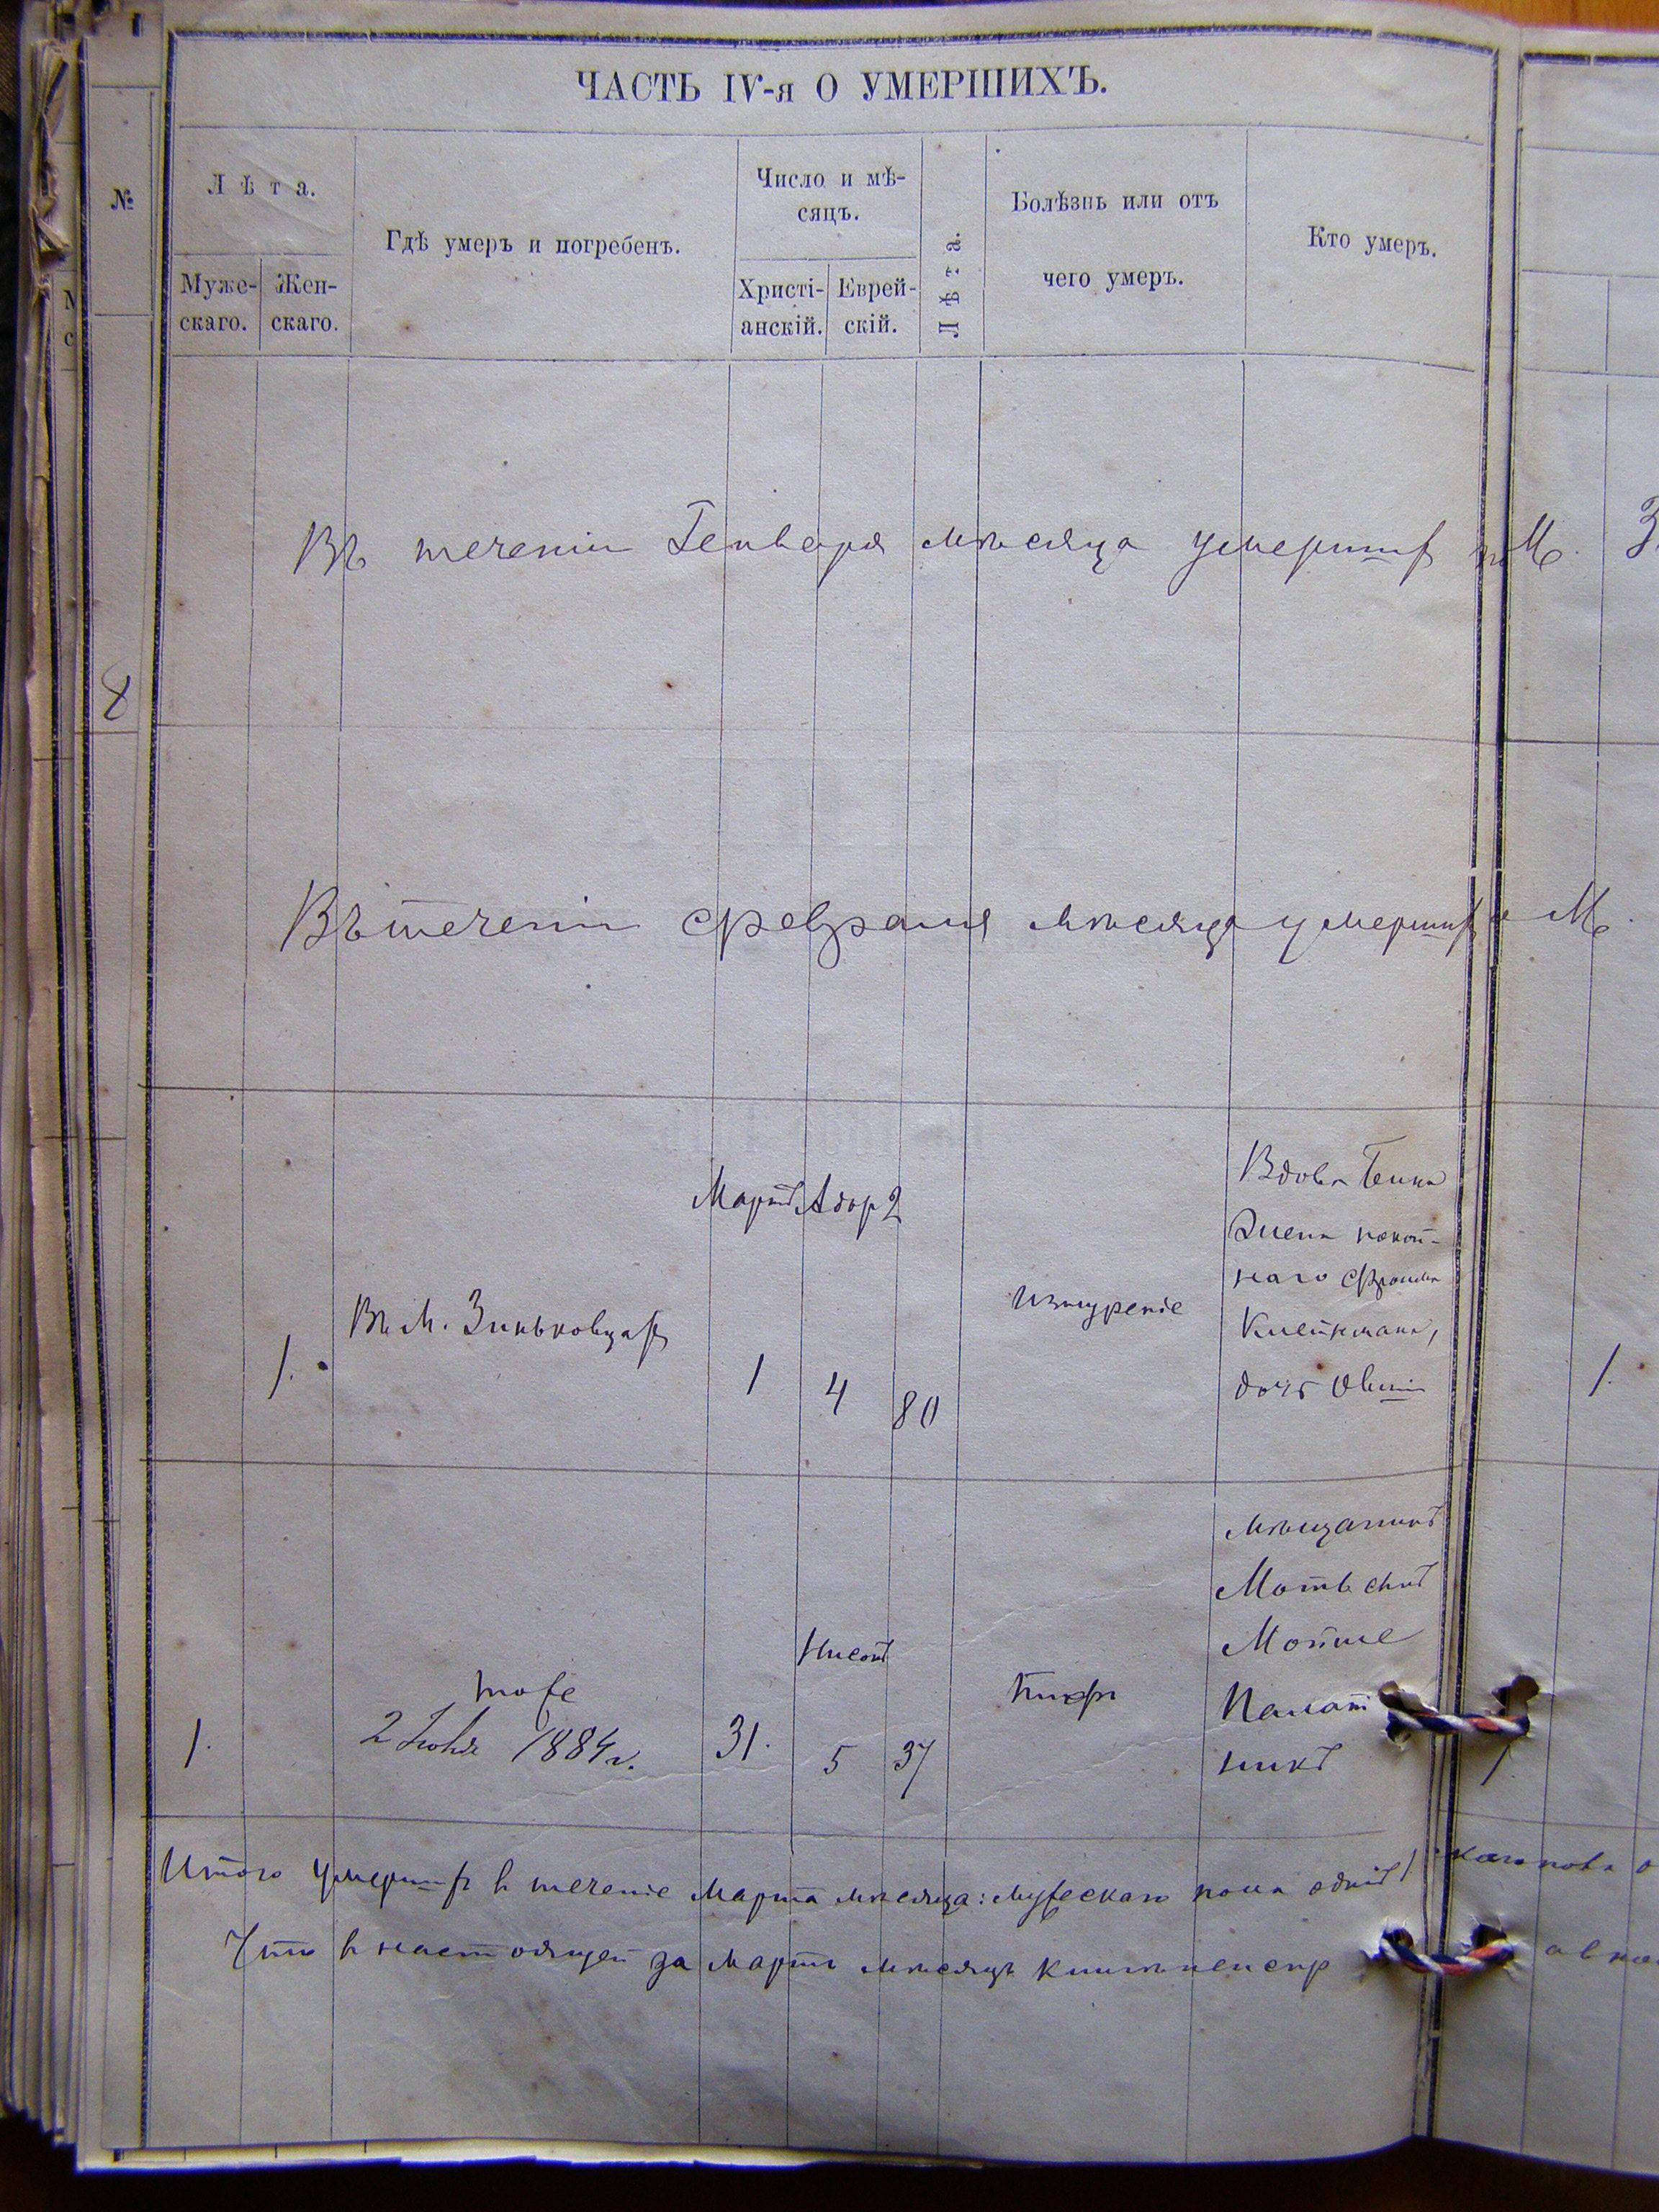 ЧАСТЬ IV-я О УМЕРШИХЪ.
№
Лѣта.
Муже-
скаго.
Жен-
скаго.
Гдѣ умеръ и погребенъ.
Число и мѣ-
сяцъ.
Христі-
анскій.
Еврей-
скій.
Лѣта.
Болѣзнь или отъ
чего умеръ.
Кто умеръ.
Въ теченіи Генваря мѣсяца умершихъ М. З
8
Въ теченіи февраля мѣсяца умершихъ М.
1.
Въ М. Зиньковцахъ
Мартъ
1
Адоръ 2
4
80
Изнурение
Вдова
Жена покой-
наго Фроима
Клейнмана,
дочь
1.
1.
тоже
2 Июня 1884 г.
31.
Нисонъ
5
37
Тифъ
Мѣщанинъ
Мотьъ сынъ
Мойше
Палат
никъ
1
Итого умершихъ в течение Марта мѣсяца: мужескаго пола одинъ
Что в настоящей за Мартъ мѣсяцъ книги